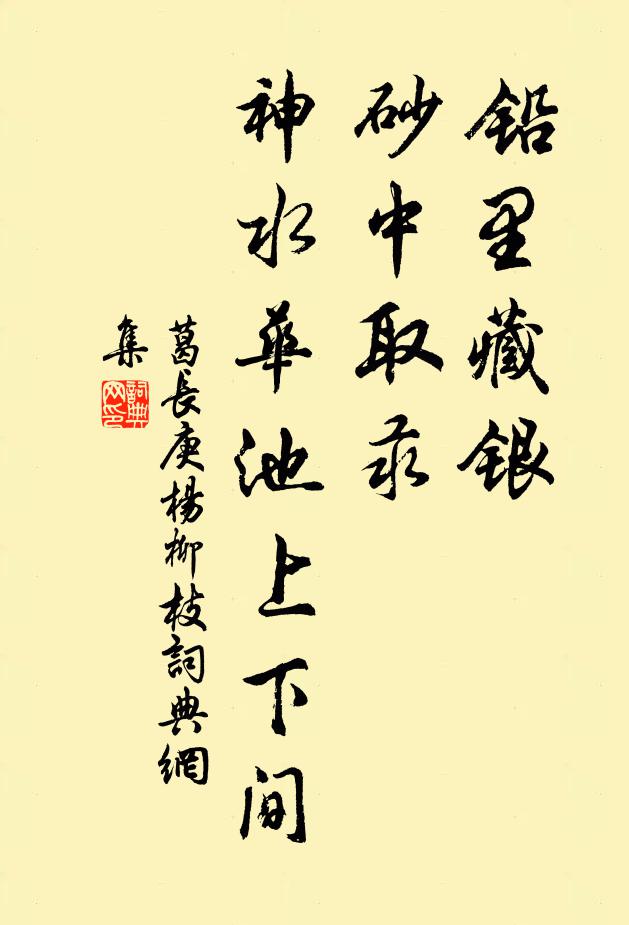 铅里藏银
砂中取汞
神水華池上下间
葛長庚楊柳枝詞典網
集
詞典
网印